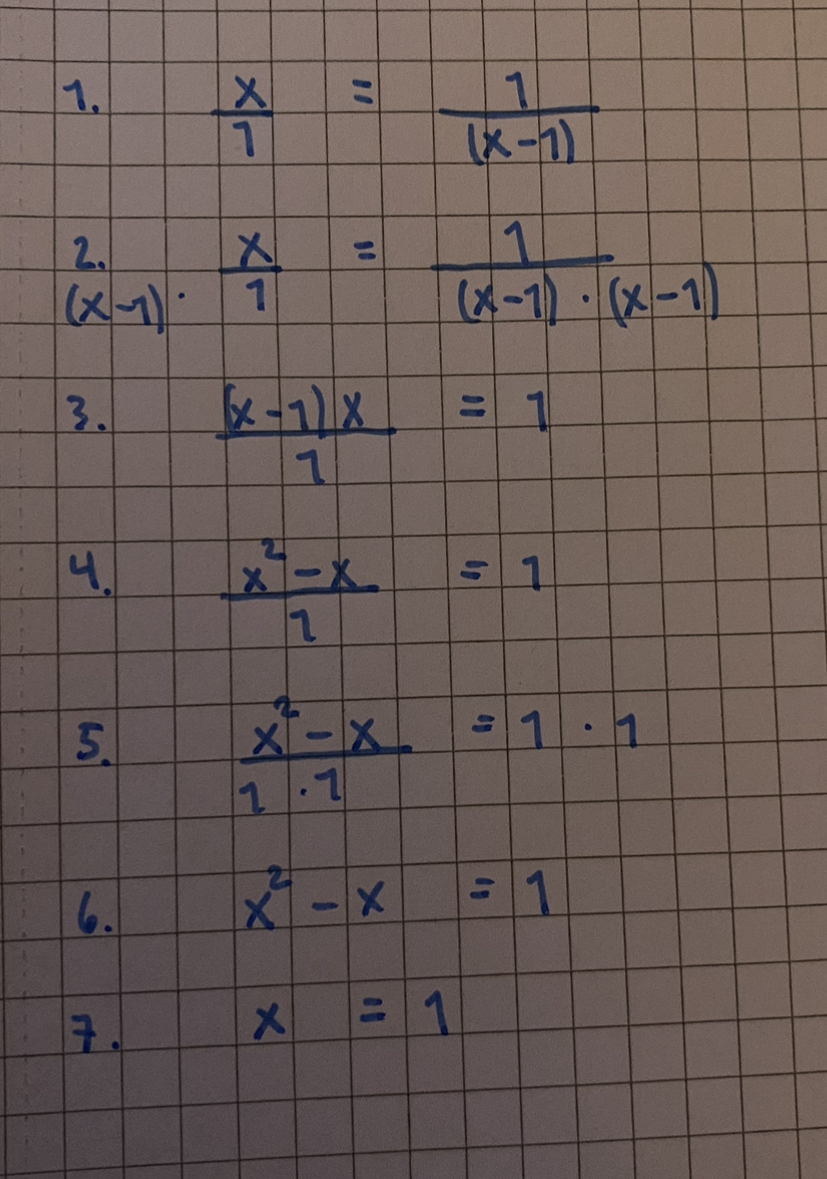 1. x/1 = 1/(x-1)
2. (x-1) · x/1 = 1/((x-1) · (x-1))
3. (x-1)x/1 = 1
4. (x² - x)/1 = 1
5. (x² - x)/(1 · 1) = 1 · 1
6. x² - x = 1
7. x = 1